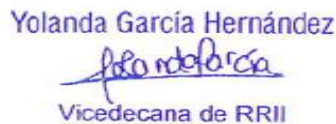 Yolanda García Hernández
Yolanda García
Vicedecana de RRII